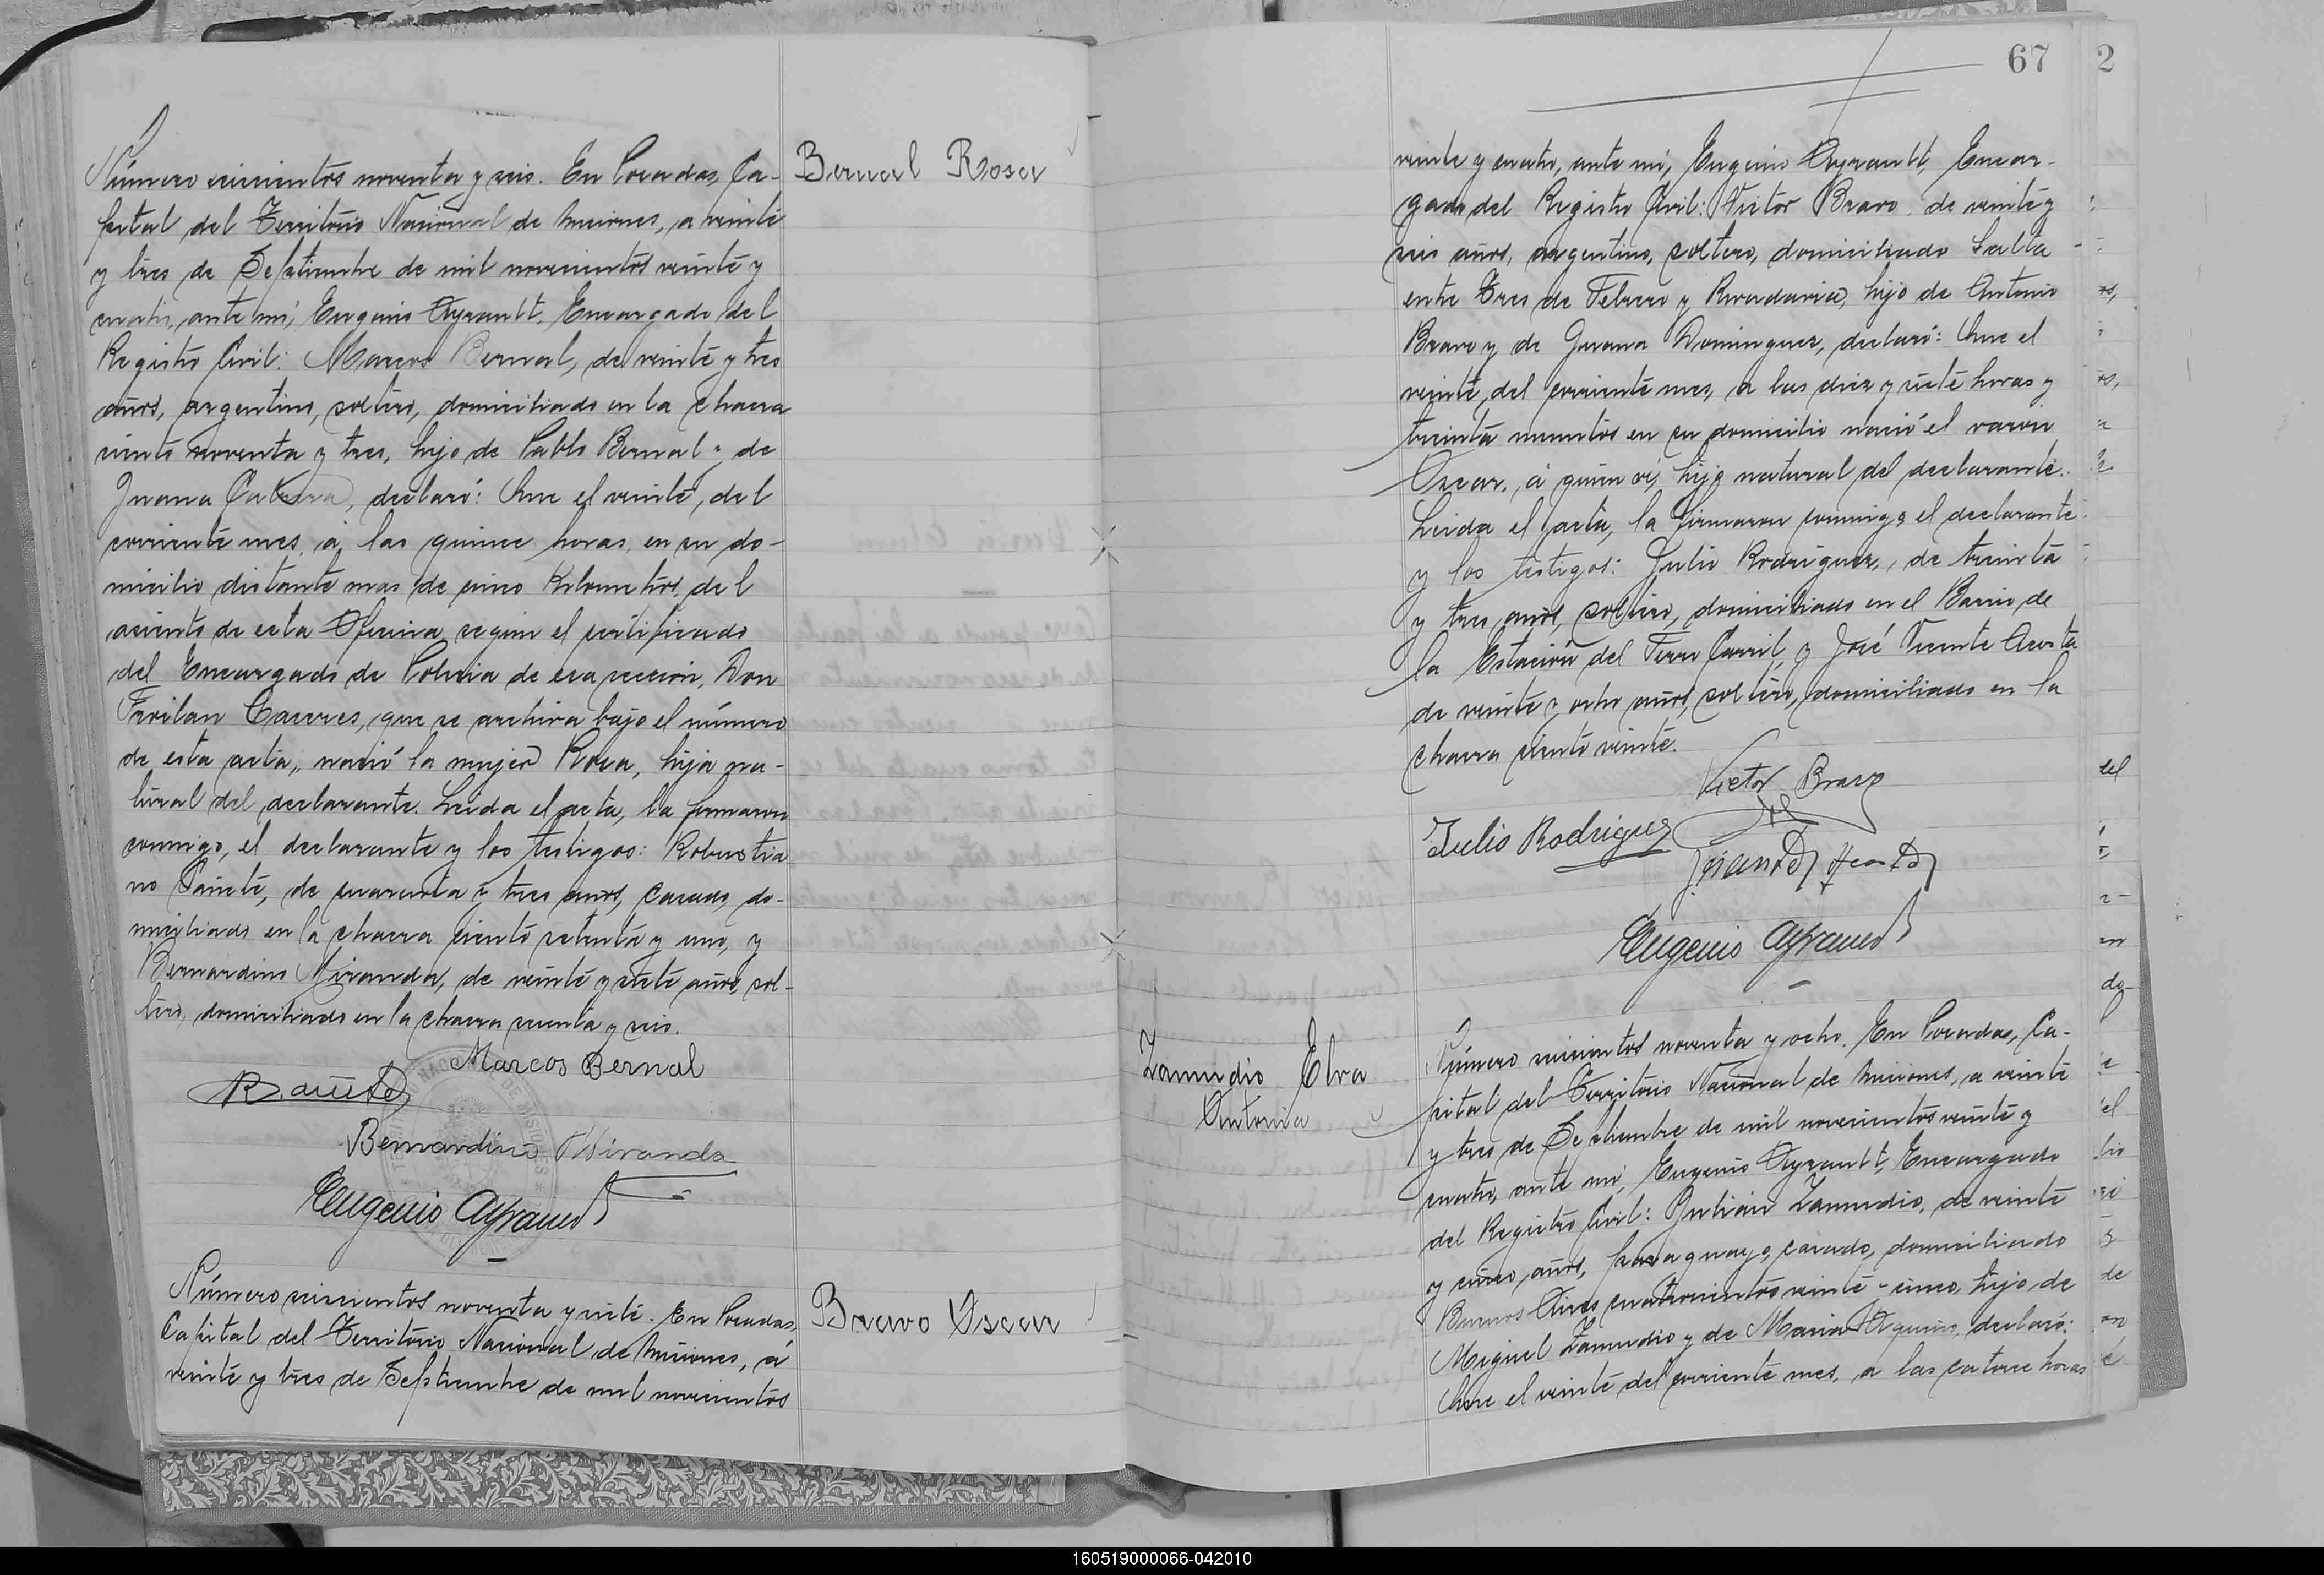 Bernal Rosa
Número seiscientos noventa y seis. En Posadas, Ca-
pital del Territorio Nacional de Misiones, a veinte
y tres de Septiembre de mil novecientos veinte y
cuatro, ante mi, Eugenio Ayrault, Encargado del
Registro Civil: Marcos Bernal, de veinte y tres
años, argentino, soltero, domiciliado en la chacra
ciento noventa y tres, hijo de Pablo Bernal y de
Juana Cabrera, declaró: Que el veinte, del
corriente mes, á las quince horas, en su do-
micilio distante mas de cinco Kilometros, del
asiento de esta Oficina, según el certificado
del Encargado de Policia de esa sección, Don
Froilan Caceres, que se archiva bajo el número
de esta acta, nació la mujer Rosa, hija na-
tural del declarante. Leida el acta, la firmaron
conmigo, el declarante y los testigos: Robustia
no Cañete, de cuarenta y tres años, casado, do-
miciliado en la chacra ciento setenta y uno, y
Bernardino Miranda, de veinte y siete años, sol-
tero, domiciliado en la chacra sesenta y seis.
Marcos Bernal
R. Cañete
Bernardino Miranda
Eugenio Ayrault
Bravo Oscar
Número seiscientos noventa y siete. En Posadas,
Capital del Territorio Nacional de Misiones, á
veinte y tres de Septiembre de mil novecientos
67
2
veinte y cuatro, ante mi, Eugenio Ayrault, Encar-
gado del Registro Civil: Victor Bravo, de veinte y
seis años, argentino, soltero, domiciliado Salta
entre Tres de Febrero y Rivadavia, hijo de Antonio
Bravo y de Juana Dominguez, declaró: Que el
veinte, del corriente mes, a las diez y siete horas y
treinta minutos en su domicilio nació el varón
Oscar, á quien vi, hijo natural del declarante.
Leida el acta, la firmaron conmigo el declarante
y los testigos: Julio Rodriguez, de treinta
y tres años, soltero, domiciliado en el Barrio de
la Estación del Ferro Carril, y José Vicente Acosta
de veinte y ocho años, soltero, domiciliado en la
chacra ciento veinte.
Victor Bravo
Julio Rodriguez
Eugenio Ayrault
Zamudio Elva
Antonia
Número seiscientos noventa y ocho. En Posadas, Ca-
pital del Territorio Nacional de Misiones, a veinte
y tres de Septiembre de mil novecientos veinte y
cuatro, ante mi, Eugenio Ayrault, Encargado
del Registro Civil: Julian Zamudio, de veinte
y cinco años, paraguayo, casado, domiciliado
Buenos Aires cuatrocientos veinte y cinco, hijo de
Miguel Zamudio y de Maria Aquino, declaró:
Que el veinte del corriente mes, a las catorce horas
160519000066-042010